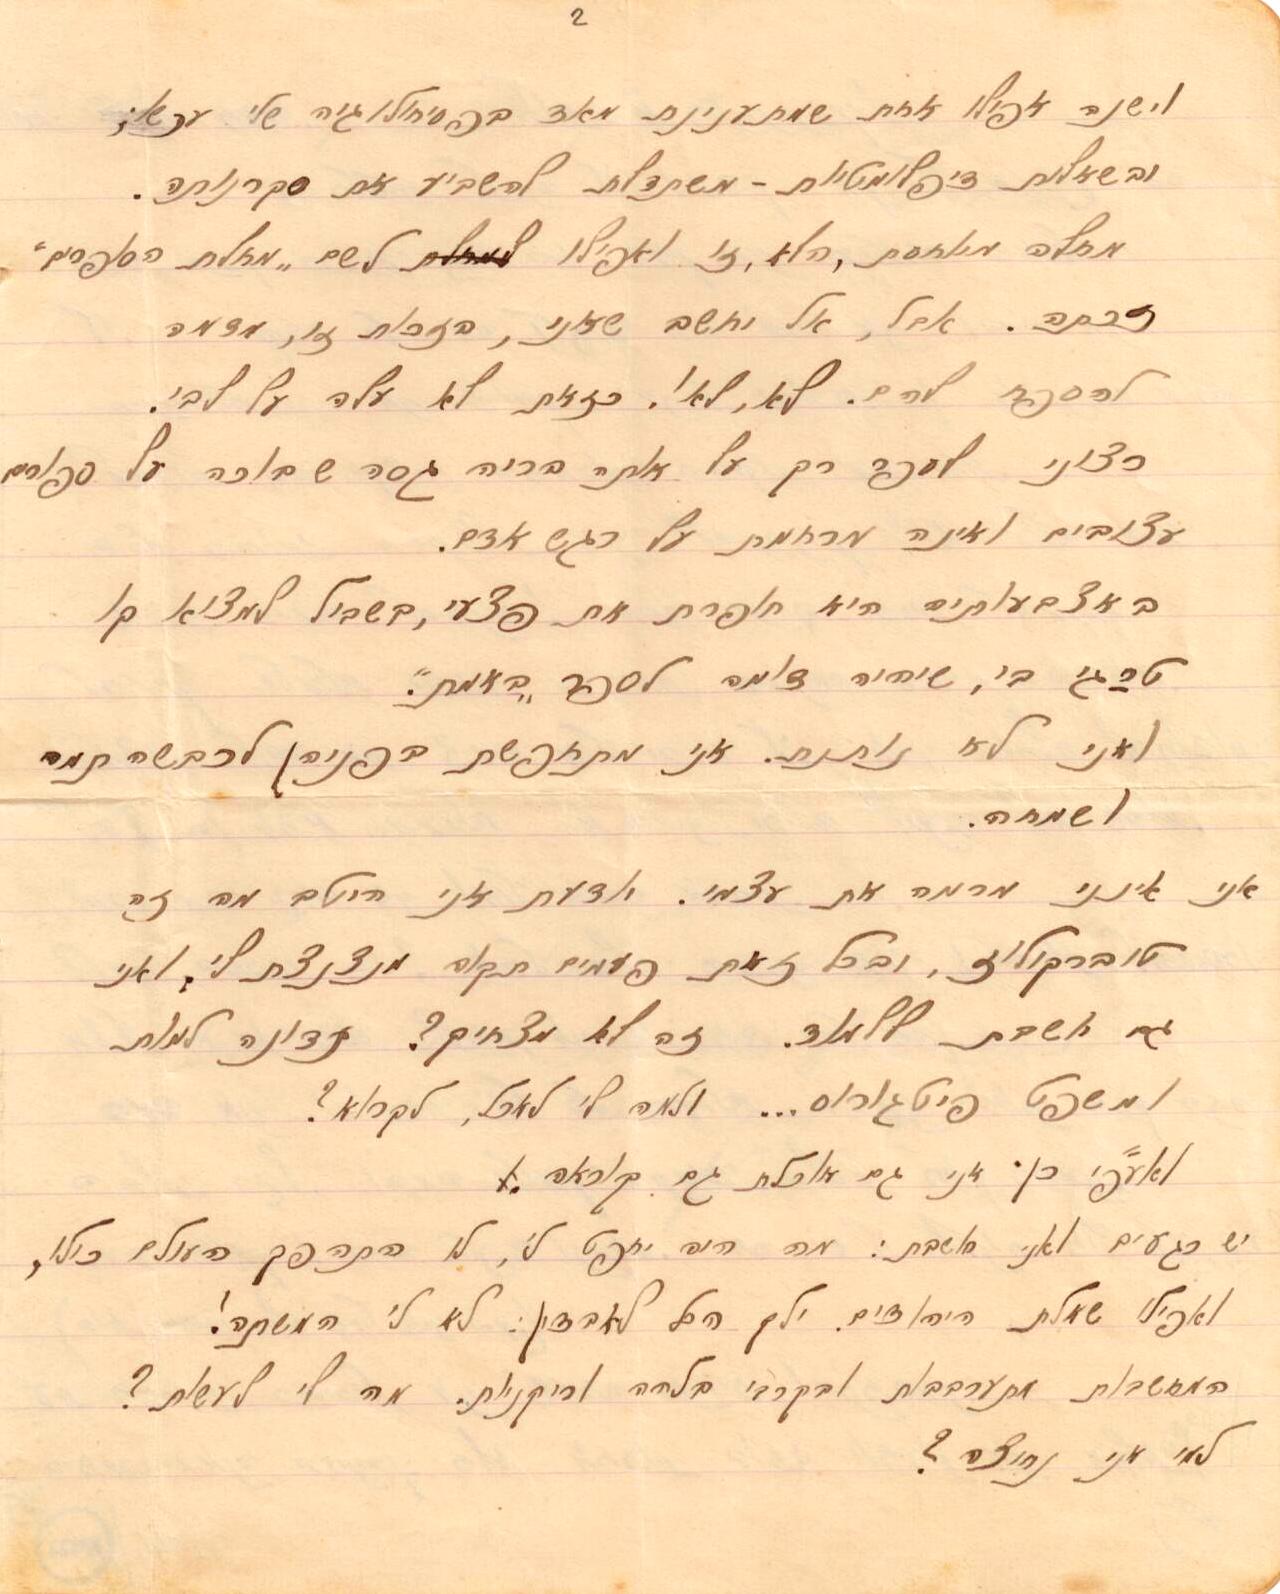 2
וישנה אפילו אחת שמתענינת מאד בפסיכולוגיה שלי עכשו;
ובשאלות דיפלומטיות – משתדלת להשביע את סקרנותה.
מחלה מיוחסת, הלא, זו ואפילו למחלת לשם „מחלת הסופרים"
זכתה. אבל, אל יחשב שאני, בזכות זו, מדמה
להספח להם. לא, לא! כזאת לא עלה על לבי.
רצוני לספר רק על אותה בריה גסה שבוכה על ספורים
עצובים ואינה מרחמת על רגש אדם.
באצבעותיה היא חופרת את פצעי, בשביל למצוא קו
טרגי בי, שיהיה דומה לספר „באמת".
ואני לא נותנת. אני מתחפשת בפניה לכבשה תמה
ושמחה.
אני אינני מרמה את עצמי. יודעת אני היטב מה זה
טוברקולוז, ובכל זאת פעמים תקוה מנצנצת לי, ואני
גם חושבת ללמוד. זה לא מצחיק? נדונה למות
ומשפט פיטגורוס... ולמה לי לאכל, לקרוא?
ואעפ״י כן אני גם אוכלת גם קוראה.
יש רגעים ואני חושבת: מה היה יחפט לי, לו התהפך העולם כולו,
ואפילו שאלת היהודים. ילך הכל לאבדון: לא לי המשתה!
המחשבות מתערבבות ובקרבי בלחה וריקנות. מה לי לעשות?
למי אני נחיצה?